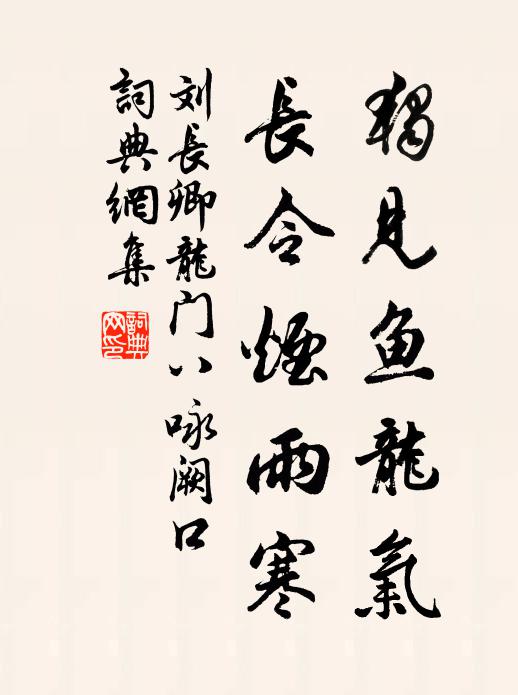 獨見魚龍氣
長令煙雨寒
刘長卿龍门八咏阙口
詞典網集
詞典网印